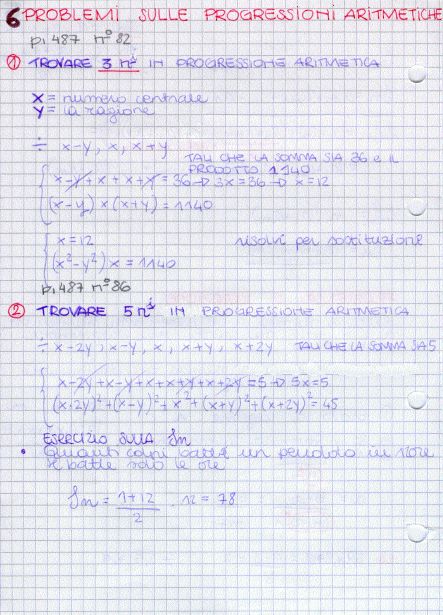 6 PROBLEMI SULLE PROGRESSIONI ARITMETICHE
p. 487 n° 82
① TROVARE 3 nⁱ IN PROGRESSIONE ARITMETICA
x = numero centrale
y = la ragione
÷ x-y, x, x+y
TALI CHE LA SOMMA SIA 36 e IL
PRODOTTO 1140
x-y+x+x+x=36→3x=36→x=12
(x-y)x(x+y)=1140
x=12 risolvi per sostituzione
(x²-y²)x=1140
p. 487 n° 86
② TROVARE 5 nⁱ IN PROGRESSIONE ARITMETICA
÷ x-2y, x-y, x, x+y, x+2y TALI CHE LA SOMMA SIA 5
x-2y+x-y+x+x+y+x+2y=5→5x=5
(x-2y)²+(x-y)²+x²+(x+y)²+(x+2y)²=45
ESERCIZIO SULLA Sn
• Quanti colpi batte un pendolo in 12 ore
se batte solo le ore
Sn = 1+12/2 · 12 = 78